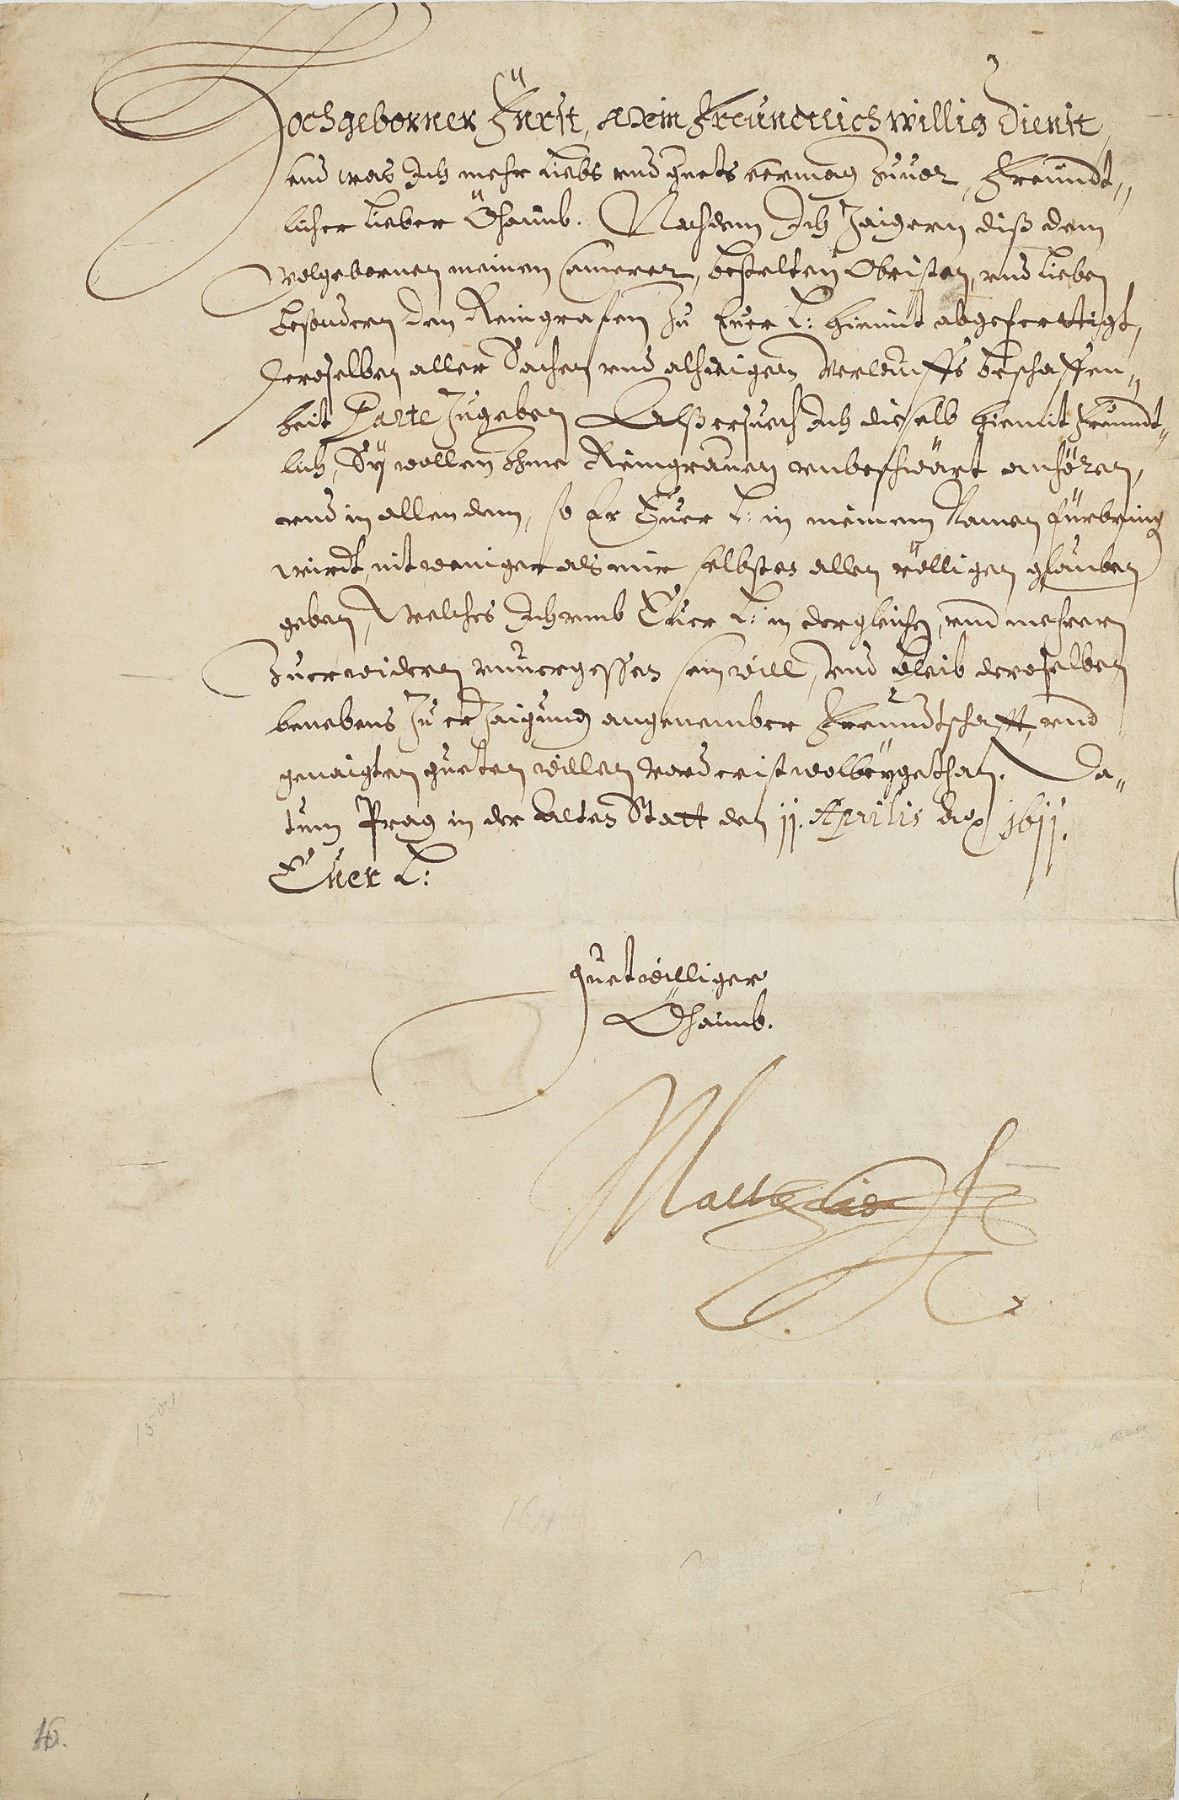 Hochgeborner Fürst, Mein Freundtlich willig Dienst,
und was Ich mehr Liebs und guets vermag Zuuor, Freundt„
licher Lieber Öhaimb. Nachdem Ich Zaigern diß dem
Wolgebornen meinem Camerer, bestelten Obristen, und Lieben
besondern dem Reingrafen Zu Euer L: hiemit abgeferttigt,
Deroselben aller Sachen und alhieigen Verlauffs beschaffen„
heit Parte Zugeben Alß ersuech Ich dieselb hiemit Freundt„
lich, Sÿ wöllen Ihme Reingrauen unbeschwärt anhören,
und in allen dem, so Er Euer L: in meinem Namen fürbring
wirdt, nit weniger als mir selbsten allen völligen glauben
geben, Welches Ich umb Euer L: in dergleichen, und mehrern
Zuerwidern unuergessen sein will, Und bleib deroselben
benebens Zu erZaigung angenember Freundtschafft, und
genaigten gueten willen vorderist wolbeÿgethan. Da„
tum Prag in der Alten Statt den 11. Aprilis Ao 1611.
Euer L:
guetwilliger
Öhaimb.
Matthias
1611
16.